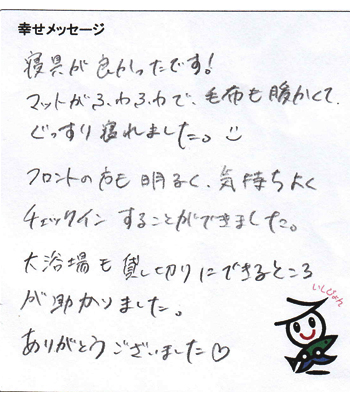 幸せメッセージ
寝具が良かったです!
マットがふわふわで、毛布も暖かくて、
ぐっすり寝れました。
フロントの方も明るく、気持ちよく
チェックインすることができました。
大浴場も貸し切りにできるところ
が助かりました。
ありがとうございました♡
いしぴょん